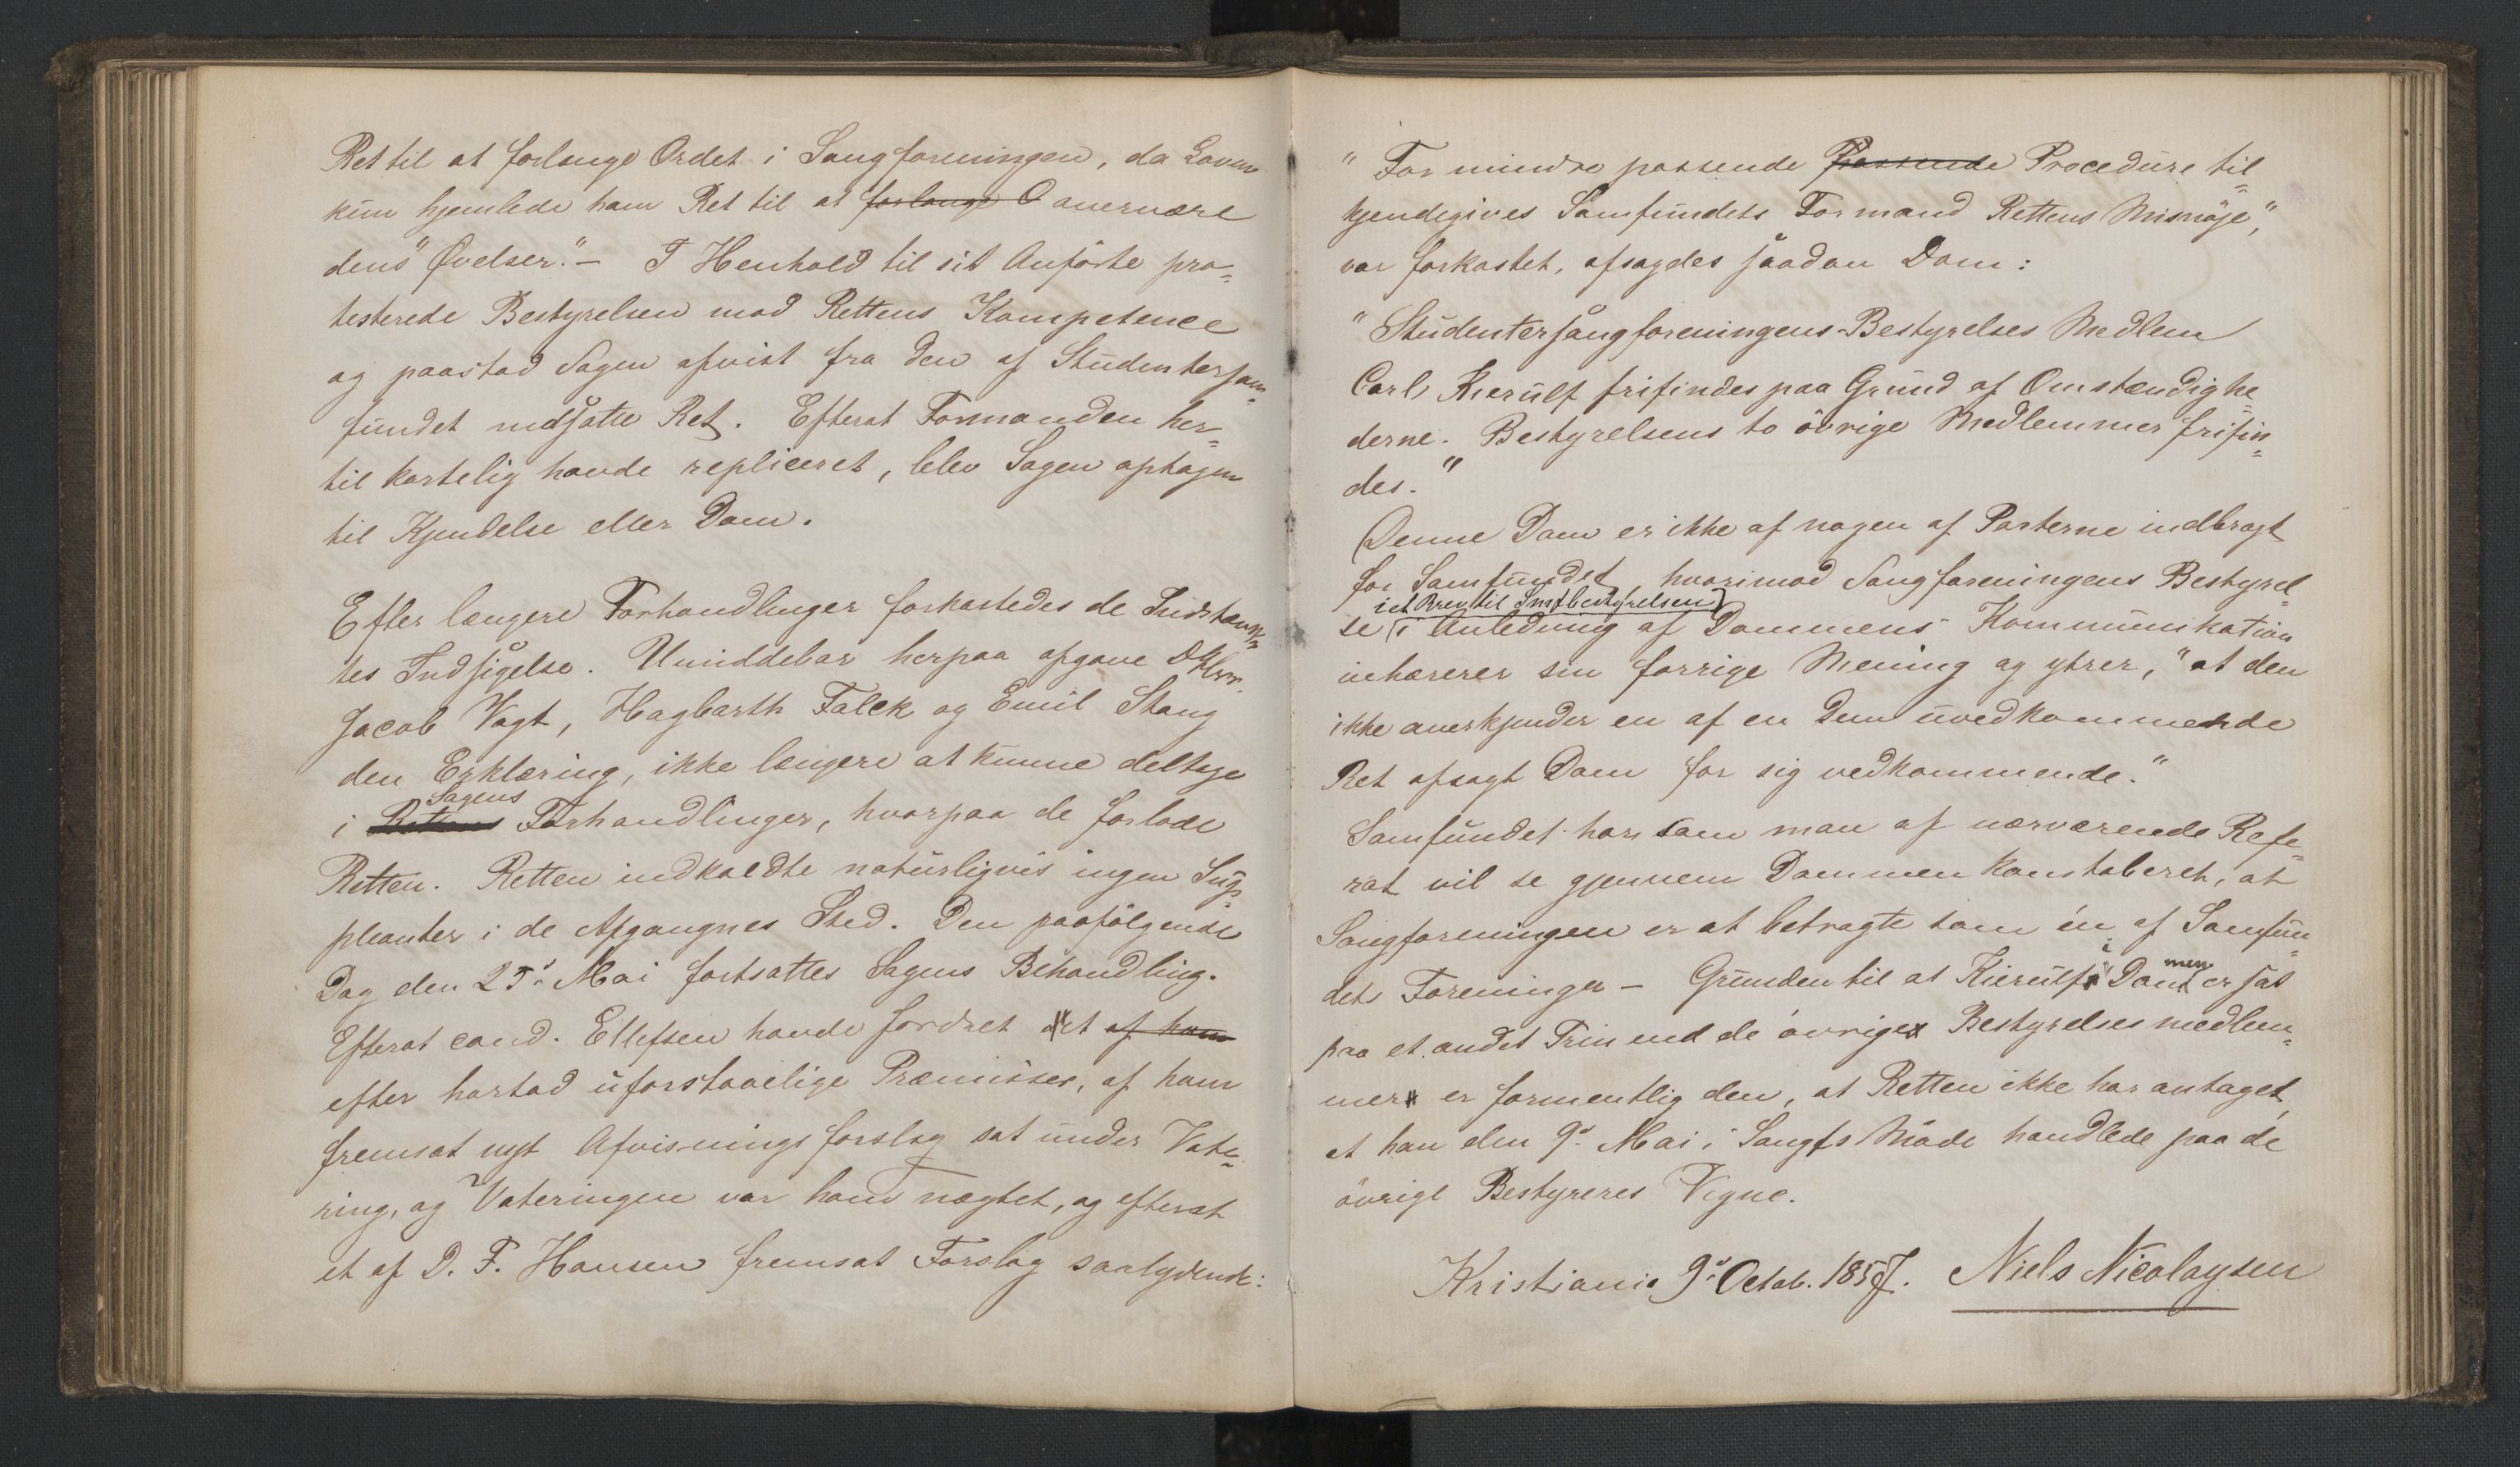 Ret til at forlange Ordet i Sangforeningen, da Loven
kun hjemlede ham Ret til at forlange O overvære
dens "Øvelser." – I Henhold til sit Anførte pro=
testerede Bestyrelsen mod Rettens Kompetence
og paastod Sagen afvist fra den af Studentersam=
fundet nedsatte Ret. Efterat Formanden her=
til kortelig havde repliceret, blev Sagen optagen
til Kjendelse eller Dom.
Efter længere Forhandlinger forkastedes de Indstævn=
tes Indsigelse. Umiddelbar herpaa afgave DHrr.
Jacob Vogt, Hagbarth Falck og Emil Stang
den Erklæring, ikke længere at kunne deltage
i Rettens Sagens Forhandlinger, hvorpaa de forlode
Retten. Retten indkaldte naturligvis ingen Sup=
pleanter i de Afgangnes Sted. Den paafølgende
Dag den 25d Mai fortsattes Sagens Behandling.
Efterat cand. Ellefsen havde fordret et af ham
efter hartad uforstaaelige Præmisser, af ham
fremsat nyt Afvisningsforslag sat under Vote=
ring, og Voteringen var ham nægtet, og efterat
et af D. F. Hansen fremsat Forslag saalydende:
"For mindre passende Passende Procedure til=
kjendegives Samfundets Formand Rettens Misnöje",
var forkastet, afsagdes saadan Dom:
"Studentersangforeningens Bestyrelses Medlem
Carl Kierulf frifindes paa Grund af Omstændighe=
derne. Bestyrelsens to övrige Medlemmer frifin=
des."
Denne Dom er ikke af nogen af Parterne indbragt
for Samfundet, hvorimod Sangforeningens Bestyrel=
i et Brev til Smfbestyrelsen
se i Anledning af Dommens Kommunikation
inhærerer sin forrige Mening og ytrer, "at den
ikke anerkjender en af en Dem uvedkommende
Ret afsagt Dom for sig vedkommende."
Samfundet har som man af nærværende Refe=
rat vil se gjennem Dommen konstateret, at
Sangforeningen er at betragte som én af Samfun=
dets Foreninger – Grunden til at Kierulf i Dommen er sat
paa et andet Trin end de övrige Bestyrelsesmedlem=
mer er formentlig den, at Retten ikke har antaget,
at han den 9d Mai i Sangfs Möde handlede paa de
övrige Bestyreres Vegne.
Kristiania 9d Octob. 1857. Niels Nicolaysen